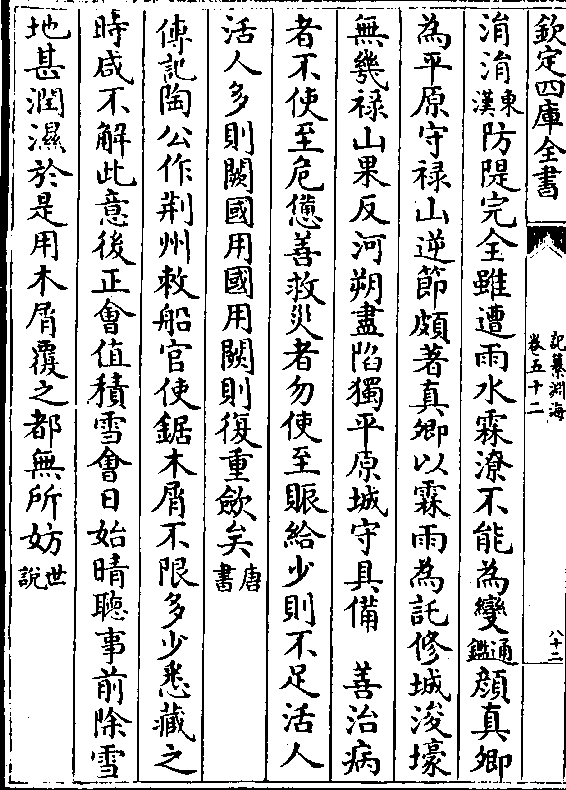 欽定四庫全書
記纂淵海
卷五十二
八十二
涓涓東漢防隄完全雖遭雨水霖潦不能為變通鑑顔真卿
為平原守禄山逆節頗著真卿以霖雨為託修城浚壕
無幾禄山果反河朔盡陷獨平原城守具備 善治病
者不使至危憊善救災者勿使至賑給少則不足活人
活人多則闕國用國用闕則復重斂矣唐書
傳記陶公作荆州敕船官使鋸木屑不限多少悉藏之
時咸不解此意後正會值積雪會日始晴聽事前除雪
地甚潤濕於是用木屑覆之都無所妨世說